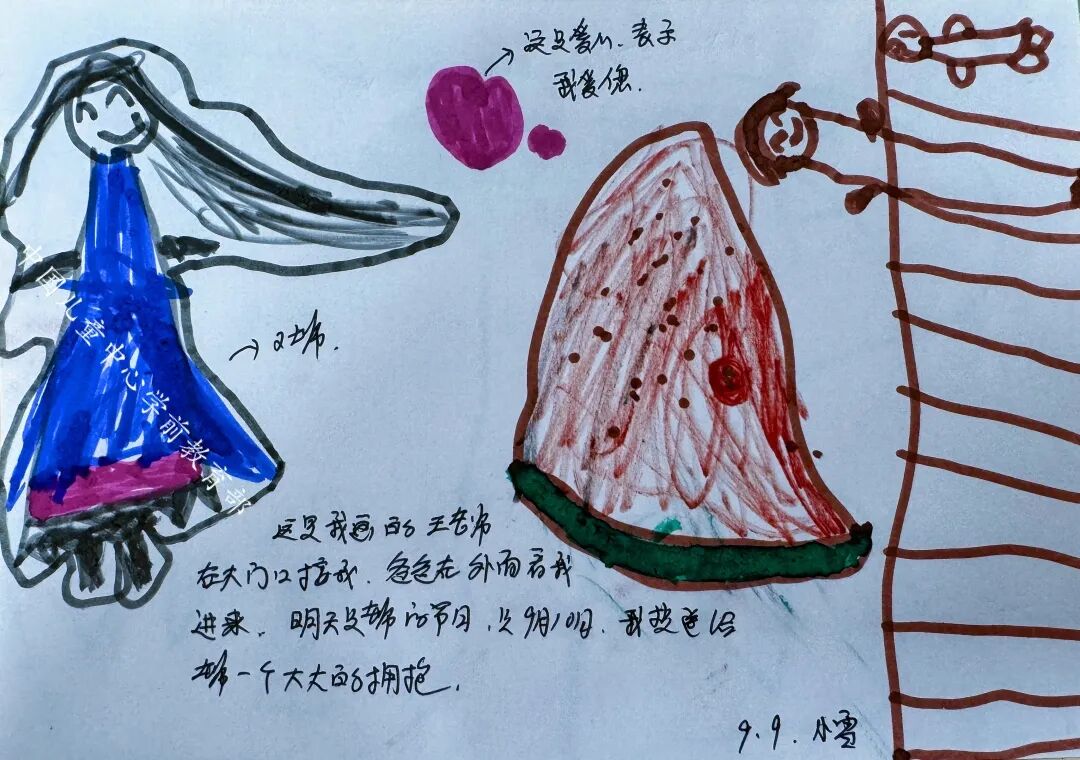 这是爱心.表示
我爱您.
王老师.
这是我画的王老师
在大门口接我.爸爸在外面看我
进来.明天是老师的节日,是9月10日.我要送给
老师一个大大的拥抱.
9.9.小雪
中国儿童中心学前教育部